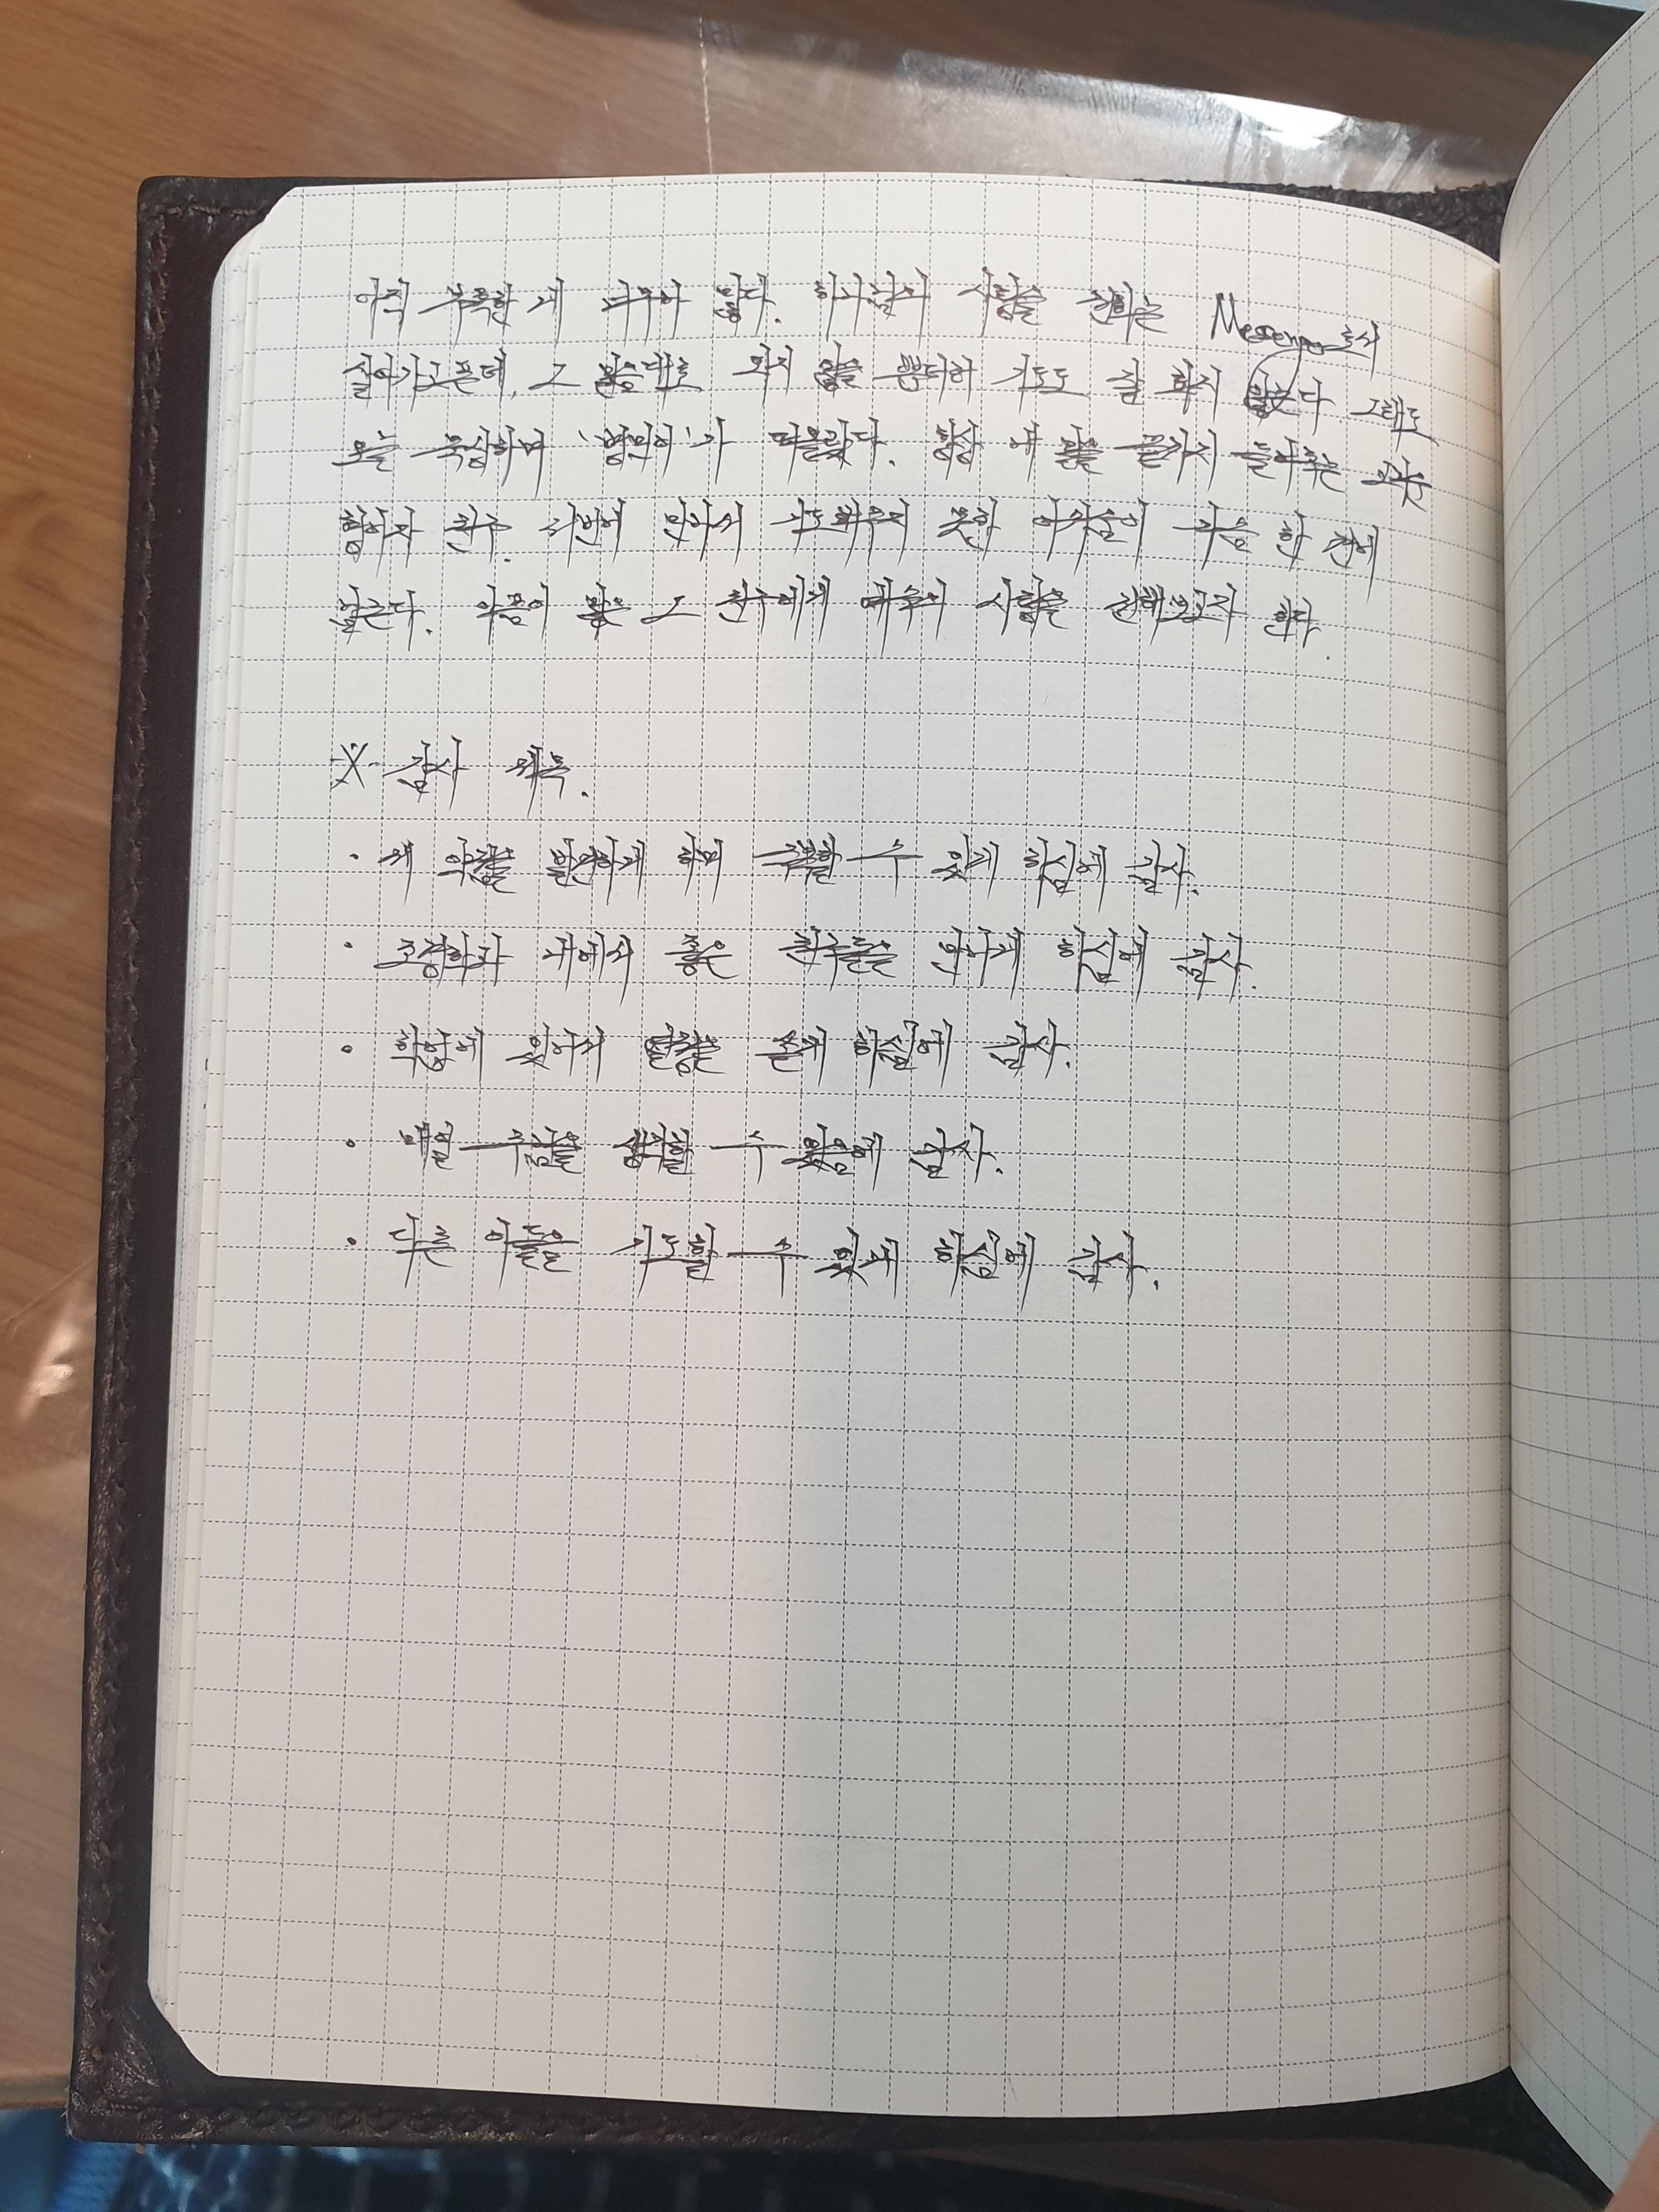 아직 부족한 게 너무나 많다. 하나님의 사랑을 전하는 Messenger로서
살아가고픈데, 그 마음대로 되지 않을 뿐더러 기도도 잘 하지 않는다. 그래도
오늘 묵상하며 '병민이'가 떠올랐다. 항상 내 말을 끝까지 들어주는
친구. 저번에 만나서 기도해주지 못한 아쉬움이 가슴 한 켠에
남는다. 아픔이 많은 그 친구에게 예수의 사랑을 전해보고자 한다.
※ 감사 제목.
· 제 약점을 발견하게 하며 극복할 수 있게 하심에 감사.
· 조경학과 내에서 좋은 친구들을 만나게 하심에 감사.
· 학업에 있어서 열정을 쏟게 하심에 감사.
· 매일 주님을 생각할 수 있음에 감사.
· 다른 이들을 기도할 수 있게 하심에 감사.